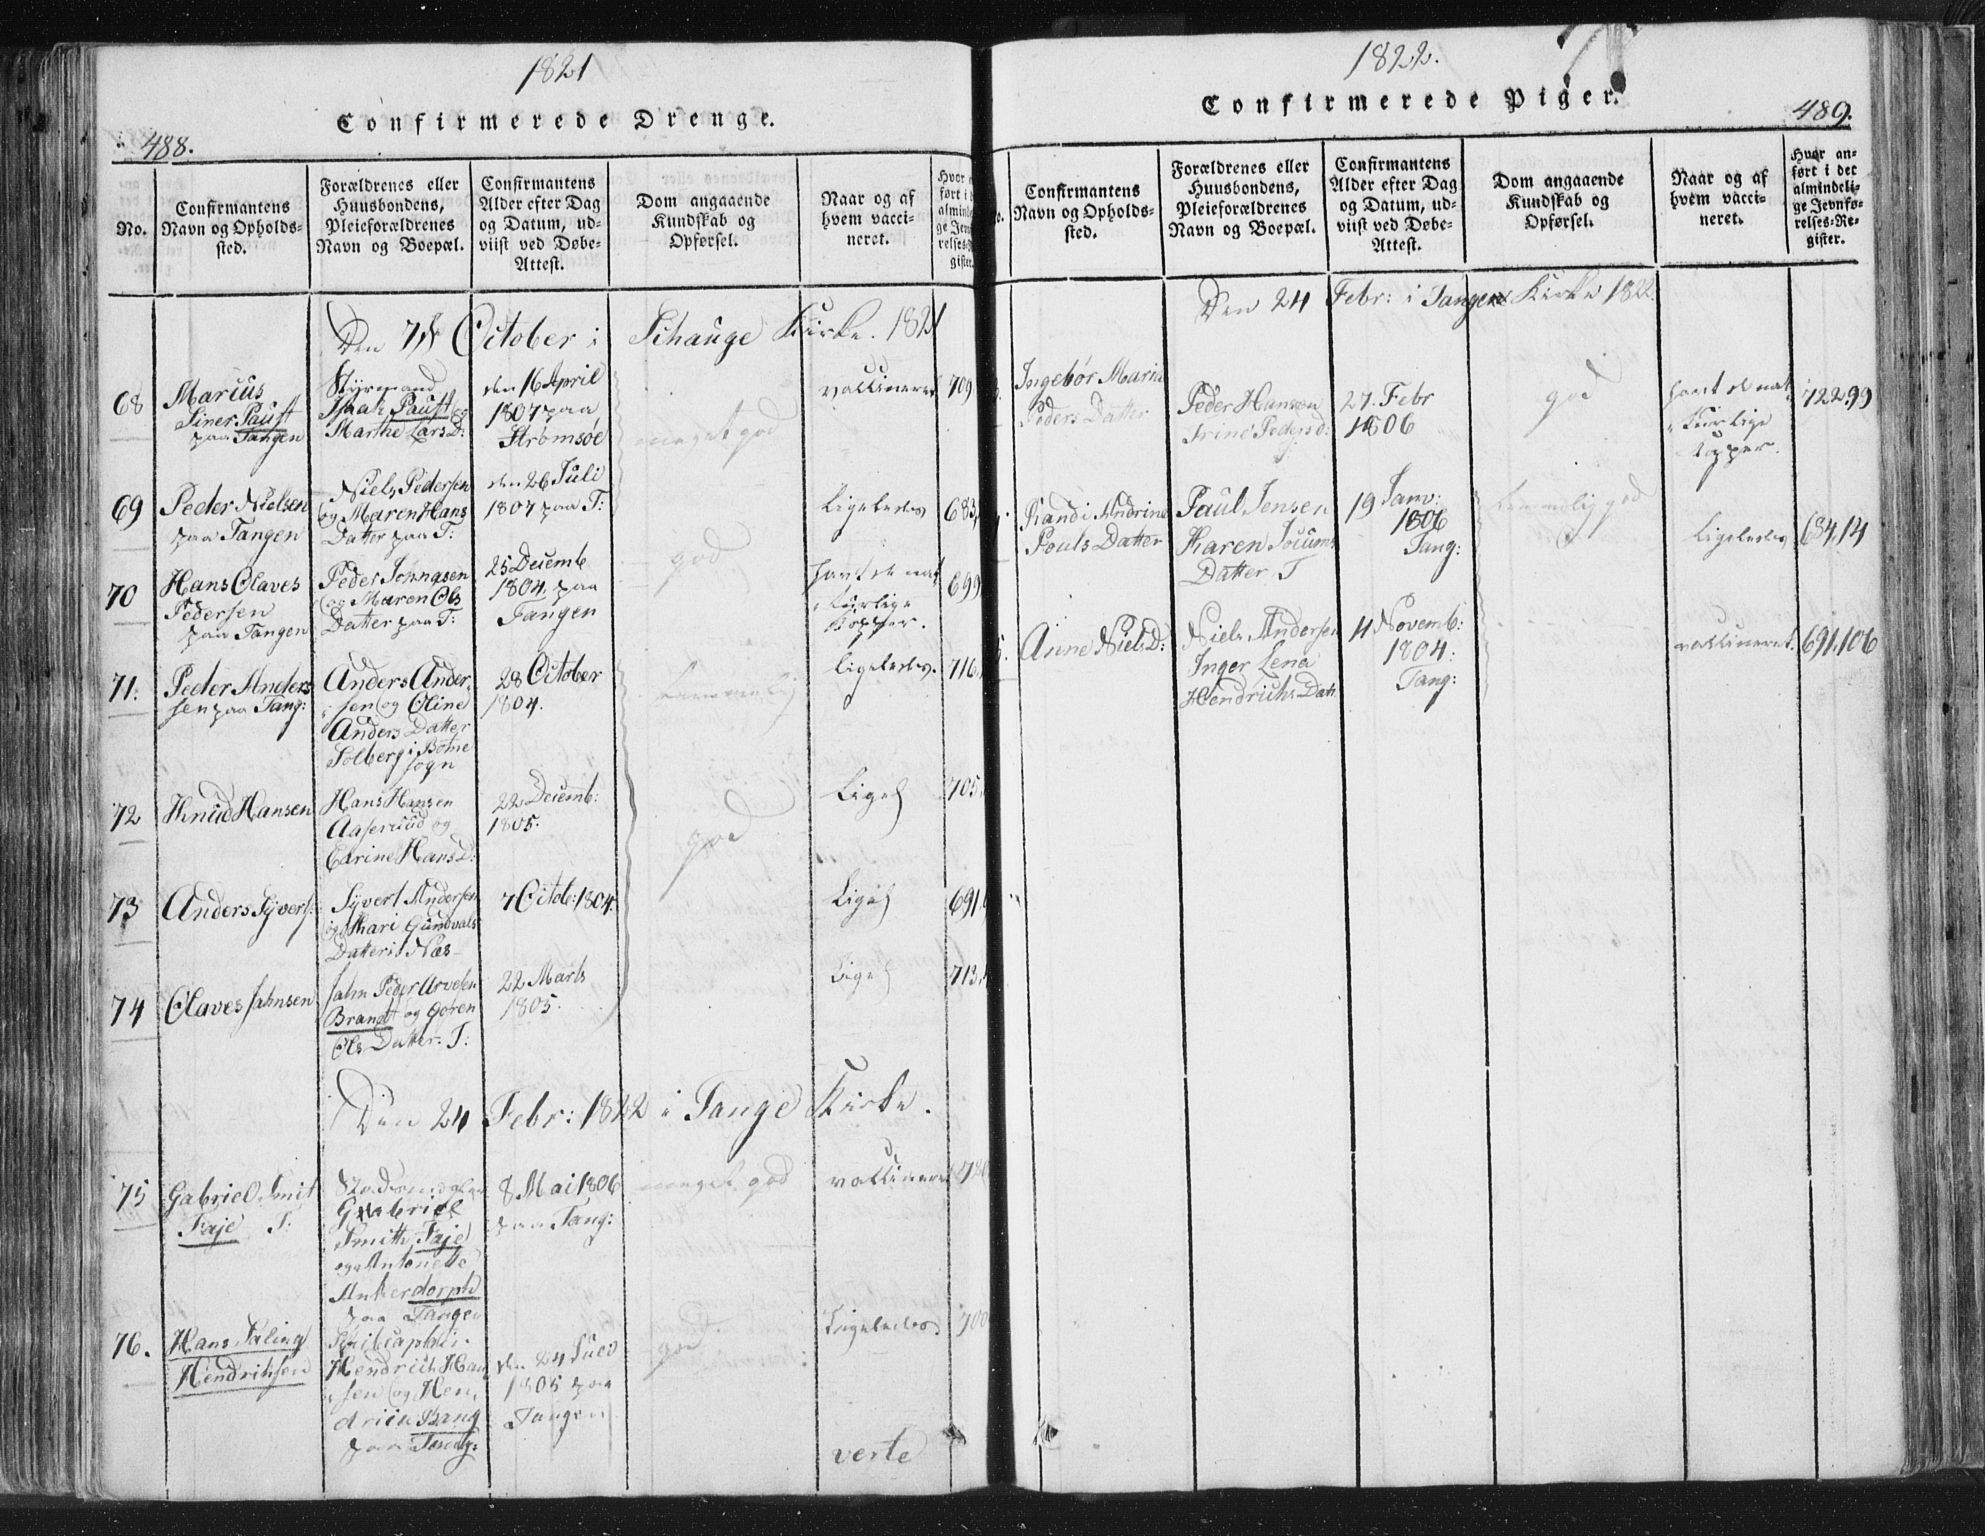 1821
488.
Confirmerede Drenge.
No.
Confirmantens
Navn og Opholds-
sted.
Forældrenes eller
Huusbondens,
Pleieforældrenes
Navn og Boepæl.
Confirmantens
Alder efter Dag
og Datum, ud-
viist ved Døbe-
Attest.
Dom angaaende
Kundskab og
Opførsel.
Naar og af
hvem vacci-
neret.
Den 7de October i Schauge Kirke. 1821
68
Marius
Siner Paust
paa Tangen
Styrmand
Isaak Paust og
Marthe Lars D:
den 16 April
1807 paa
Strømsøe
meget god
vaccineret
709
69
Peder Nielsen
paa Tangen
Niels Pedersen
og Maren Hans
Datter paa T:
den 26 Juli
1807 paa T:
Ligeledes
683
70
Hans Olaves
Pedersen
paa Tangen
Peder
og Maren Ols
Datter paa T:
25 Decemb
1804 paa
Tangen
god
havt de nat
turlige
Kopper.
699
71.
Peder Anders
sen paa Tang:
Anders Ander
sen og Oline
Anders Datter
Solberg i Botne
Sogn
28 October
1804.
temmelig
ligeledes.
716
72
Knud Hansen
Hans Hansen
Aaserud og
Carine Hans D:
22 Decemb:
1805.
god
Ligel
705
73
Anders Syvers:
Syvert Andersen
og Mari Gundvals
Datter Næs
7 Octob: 1804.
Ligel
691
74
Olaves Jahnsen
Jahn Peder Arvesen
Brandt og Gøren
Ols Datter. T:
22 Marts
1805.
Ligel
713
Den 24 Febr: 1822 i Tange Kirke.
75
Gabriel Smit
Faje T:
Gabriel
Smith Faje
og Antonette
Ankerdorph
paa Tangen
8 Mai 1806
paa Tang:
meget god
vaccineret
76.
Hans Faling
Hendriksen
Skibcaptein
Hendrich Han
sen og Hen
dricia Bang
paa Tang:
den 24 Juli
1805 paa
Tangen
god
Ligeledes
700
verte
1822.
Confirmerede Piger.
489.
Confirmantens
Navn og Opholds-
sted.
Forældrenes eller
Huusbondens,
Pleieforældrenes
Navn og Boepæl.
Confirmantens
Alder efter Dag
og Datum, ud-
viist ved Døbe-
Attest.
Dom angaaende
Kundskab og
Opførsel.
Naar og af
hvem vacci-
neret.
Hvor an-
ført i det
almindeli-
ge Jevnfø-
relses-Re-
gister.
Den 24 Febr: i Tangen Kirke 1822.
Ingebør Maria
Peders Datter
Peder Hansen
Trine Peders d:
27 Febr
1806
god
havt de nat
turlige
Kopper.
722.99
Randi Andrine
Pouls Datter
Paul Jensen
Karen Jocums
Datter. T
19 Janv:
1806
Tang:
temmelig god
Ligeledes
684.14
Anne Niels D:
Niels Andersen
Inger Lena
Hendrichs Dat
11 Novemb:
1804:
Tang:
vaccineret.
691.106